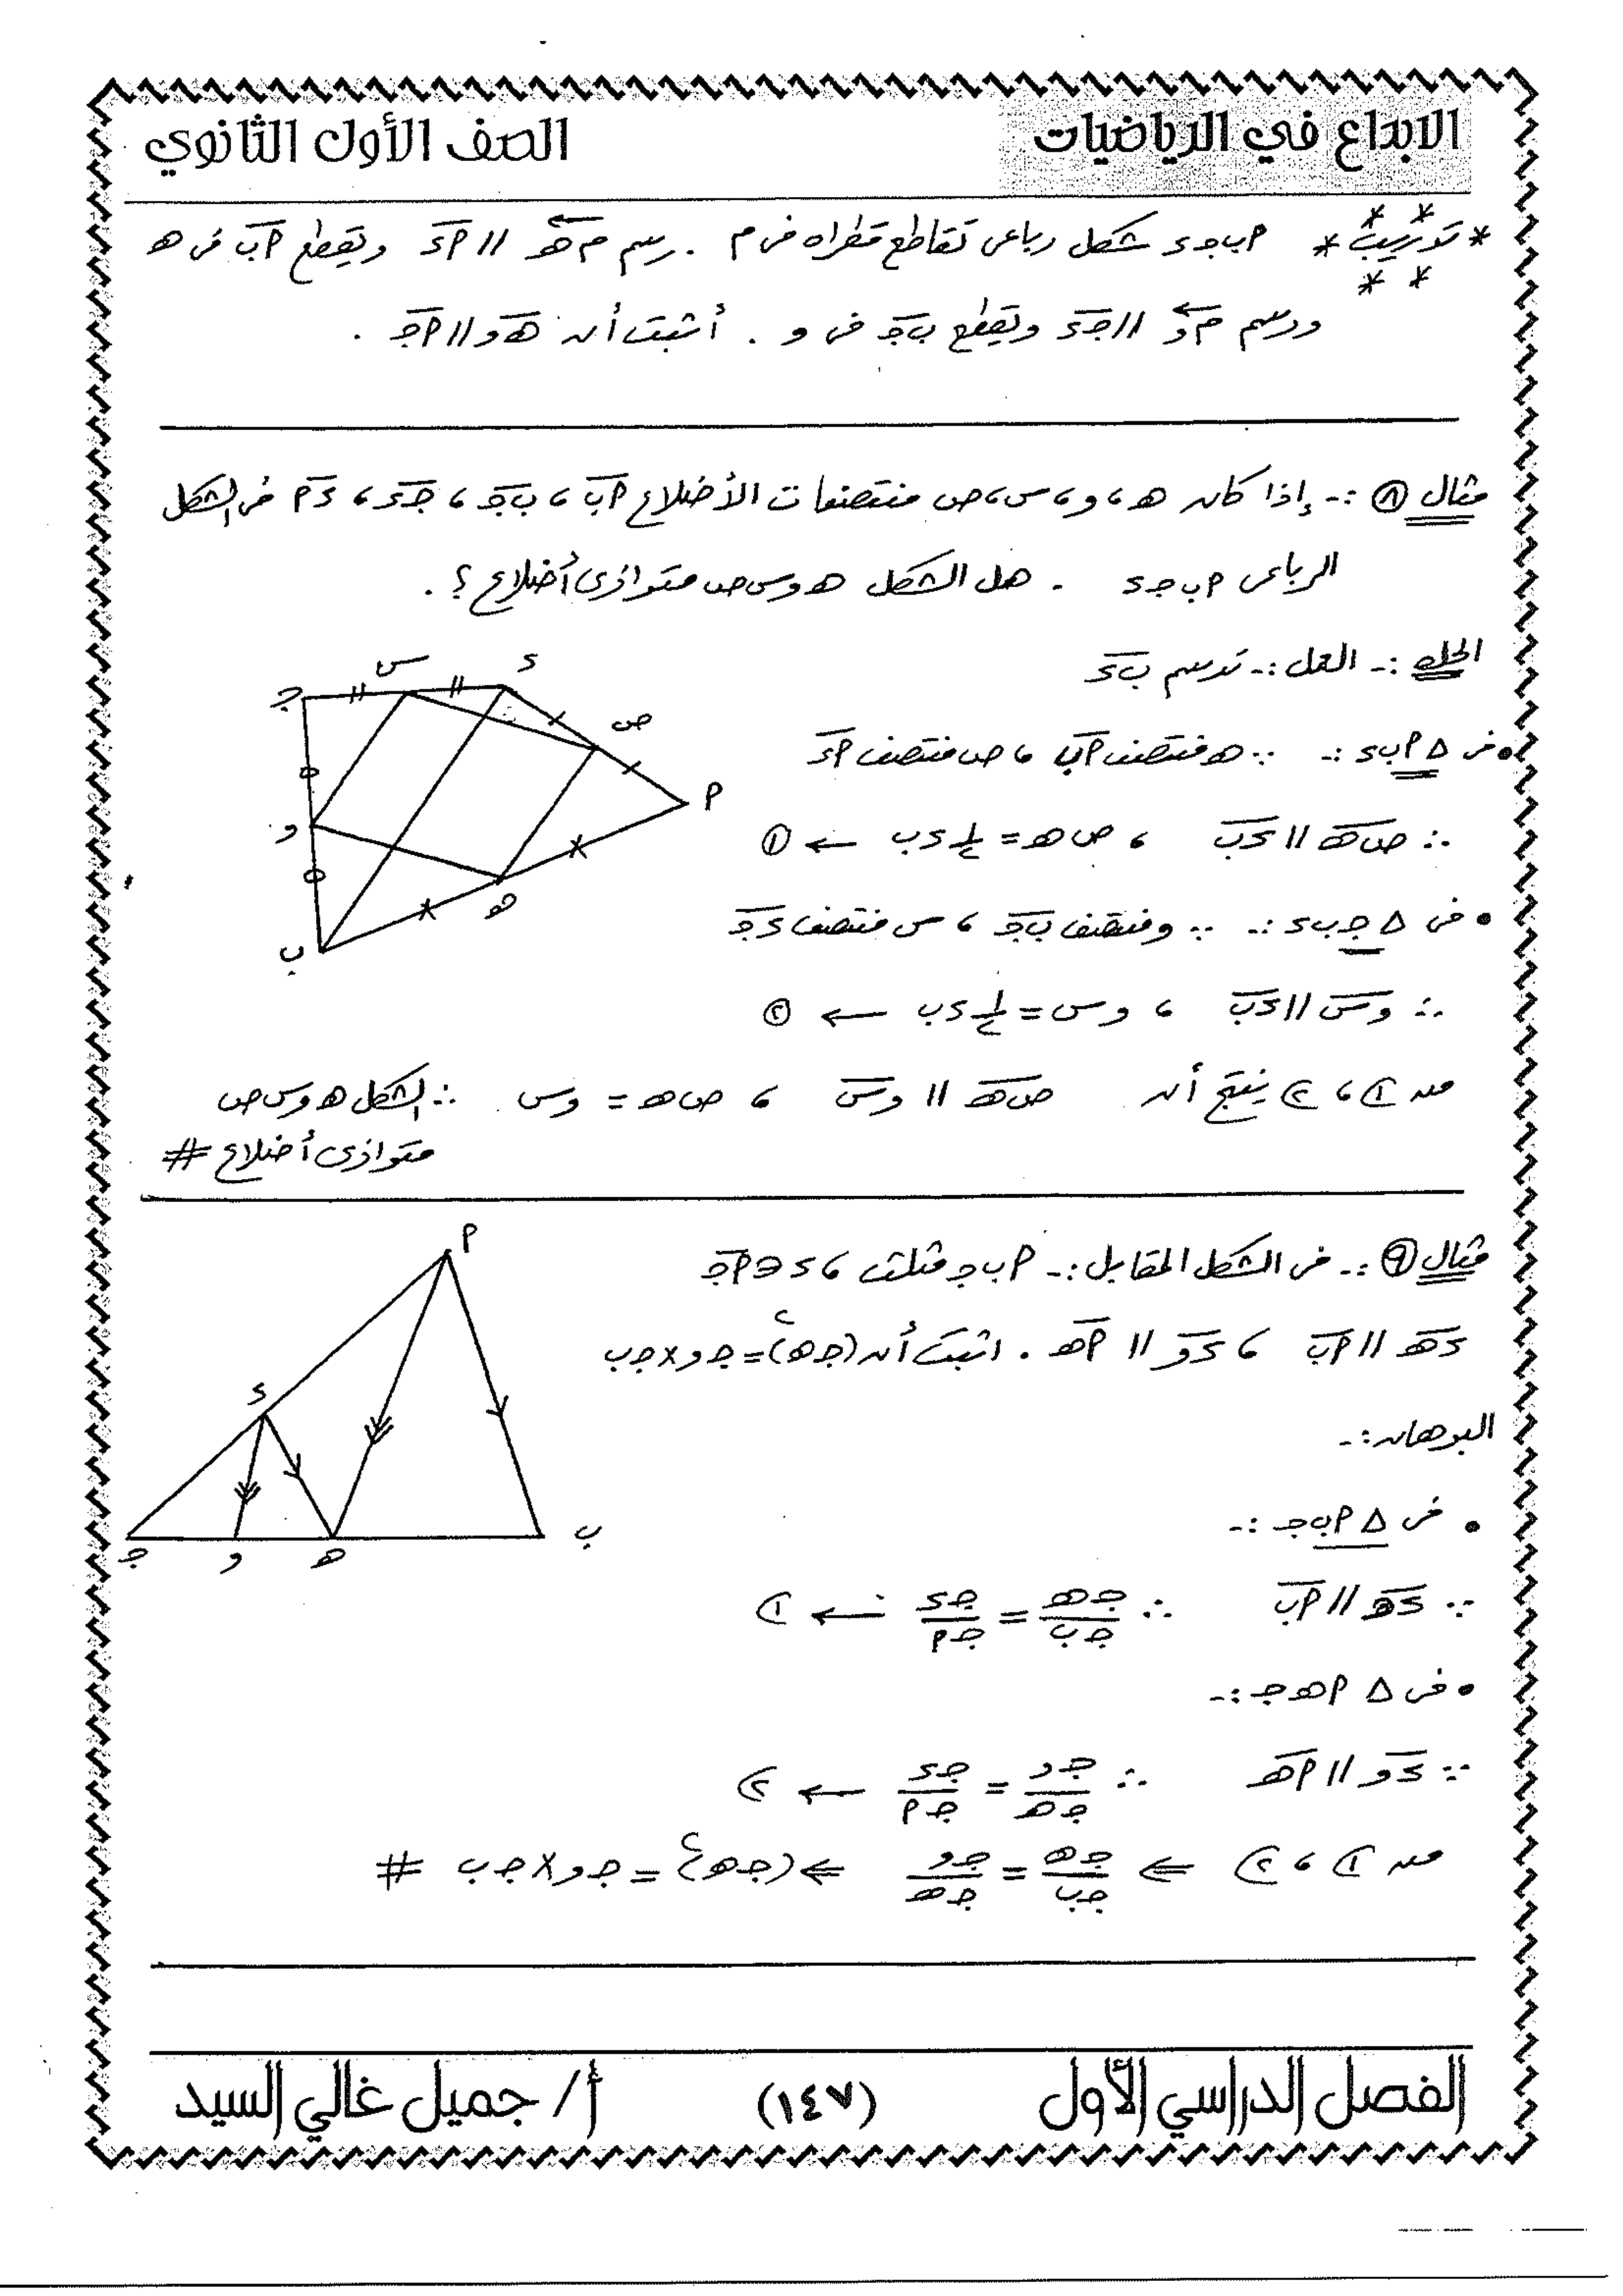 الابداع في الرياضيات
الصف الأول الثانوي
* تدريب * أ ب جـ د شكل رباعى تقاطع قطراه فى م . رسم م هـ // أ د ويقطع أ ب فى هـ
ورسم م و // جـ د ويقطع ب جـ فى و . أثبت أن هـ و // أ جـ .
مثال ٨ :- إذا كان هـ ، و ، س ، ص منتصفات الأضلاع أ ب ، ب جـ ، جـ د ، د أ فى الشكل
الرباعى أ ب جـ د . هل الشكل هـ و س ص متوازى أضلاع ؟ .
الحل :- العمل :- نرسم ب د
• فى Δ أ ب د :- ∵ هـ منتصف أ ب ، ص منتصف أ د
∴ ص هـ // د ب ، ص هـ = ½ د ب ← ①
• فى Δ جـ ب د :- ∵ و منتصف ب جـ ، س منتصف د جـ
∴ و س // د ب ، و س = ½ د ب ← ②
من ١ ، ٢ ينتج أن ص هـ // و س ، ص هـ = و س ∴ الشكل هـ و س ص
متوازى أضلاع #
جـ س د ص أ و هـ ب
مثال ٩ :- فى الشكل المقابل :- أ ب جـ مثلث ، د ∈ أ جـ
د هـ // أ ب ، د و // أ هـ . اثبت أن (جـ هـ)² = جـ و × جـ ب
البرهان :-
• فى Δ أ ب جـ :-
∵ د هـ // أ ب ∴ جـ هـ / جـ ب = جـ د / جـ أ ← ١
• فى Δ أ هـ جـ :-
∵ د و // أ هـ ∴ جـ و / جـ هـ = جـ د / جـ أ ← ٢
من ١ ، ٢ ⇐ جـ هـ / جـ ب = جـ و / جـ هـ ⇐ (جـ هـ)² = جـ و × جـ ب #
أ د جـ و هـ ب
الفصل الدراسي الأول
(١٤٧)
أ / جميل غالي السيد